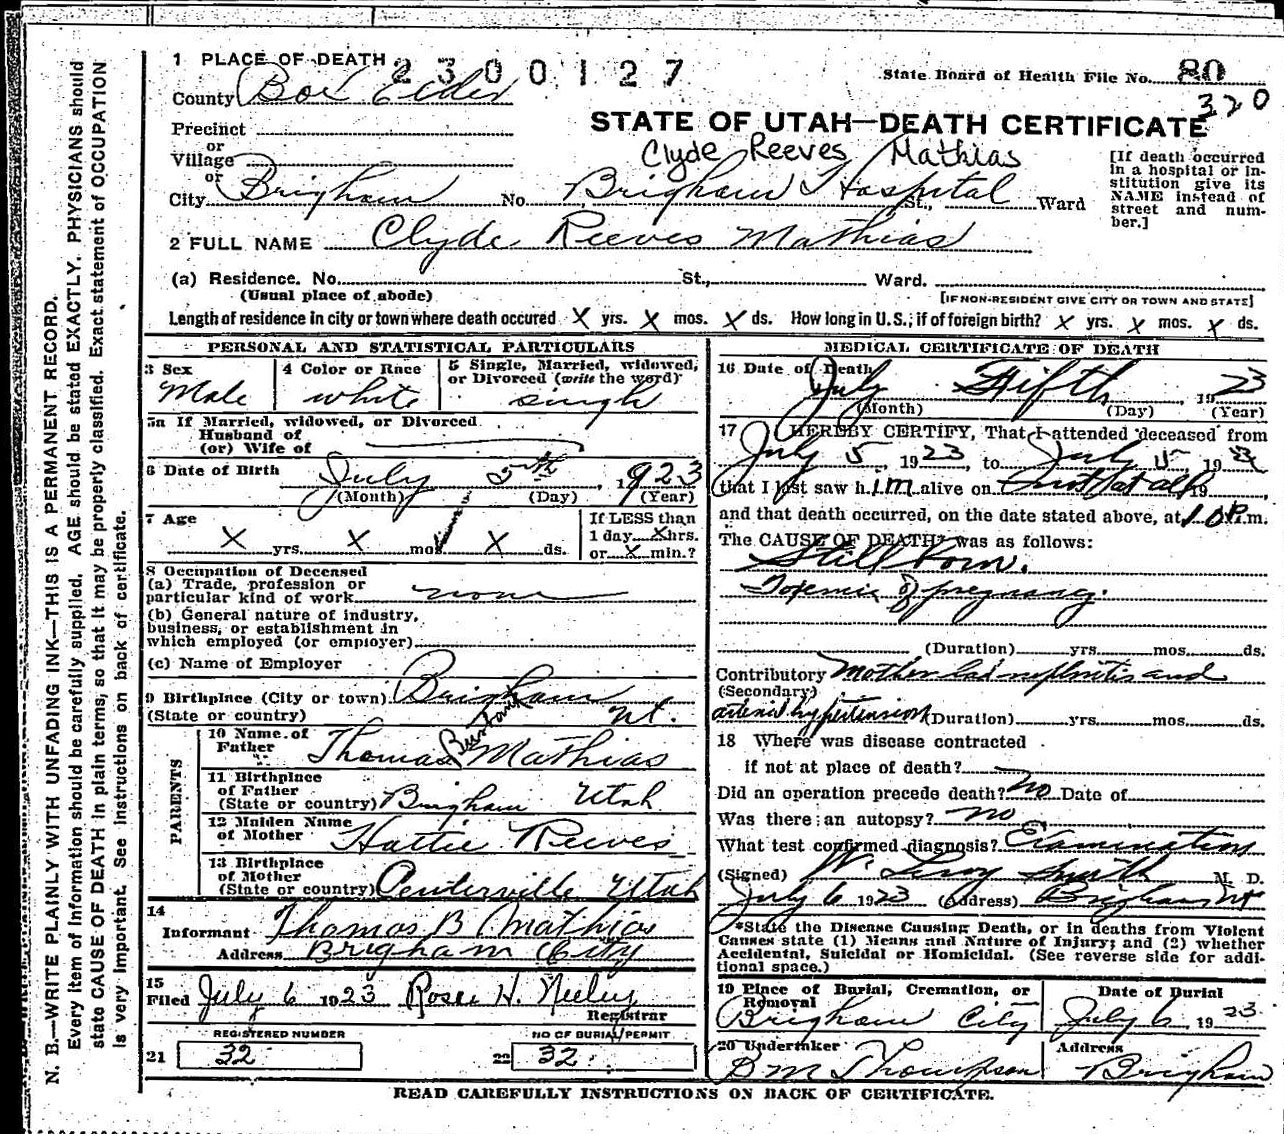 1 PLACE OF DEATH 2300127
State Board of Health File No. 80
320
County Box Elder
STATE OF UTAH—DEATH CERTIFICATE
Precinct
or
Village
or
Clyde Reeves Mathias
City Brigham No. Brigham Hospital St., Ward
[If death occurred in a hospital or institution give its NAME instead of street and number.]
2 FULL NAME Clyde Reeves Mathias
(a) Residence. No. St., Ward.
(Usual place of abode) [IF NON-RESIDENT GIVE CITY OR TOWN AND STATE]
Length of residence in city or town where death occured X yrs. X mos. X ds. How long in U.S., if of foreign birth? X yrs. X mos. X ds.
PERSONAL AND STATISTICAL PARTICULARS
3 Sex Male
4 Color or Race white
5 Single, Married, widowed, or Divorced (write the word) single
5a If Married, widowed, or Divorced
Husband of
(or) Wife of
6 Date of Birth July 5th, 1923
(Month) (Day) (Year)
7 Age X yrs. X mos. X ds.
If LESS than
1 day X hrs.
or X min.?
8 Occupation of Deceased
(a) Trade, profession or
particular kind of work none
(b) General nature of industry,
business, or establishment in
which employed (or employer)
(c) Name of Employer
9 Birthplace (City or town) Brigham
(State or country) Ut.
PARENTS
10 Name of Father Thomas Mathias
11 Birthplace of Father
(State or country) Brigham Utah
12 Maiden Name of Mother Hattie Reeves
13 Birthplace of Mother
(State or country) Centerville Utah
14
Informant Thomas B Mathias
Address Brigham City
15
Filed July 6 1923 Rosee H. Neeley
Registrar
REGISTERED NUMBER NO OF BURIAL PERMIT
21 32 22 32
MEDICAL CERTIFICATE OF DEATH
16 Date of Death July Fifth 1923
(Month) (Day) (Year)
17 I HEREBY CERTIFY, That I attended deceased from
July 5, 1923, to July 5 1923
that I last saw him alive on not at all 19
and that death occurred, on the date stated above, at 10 P.m.
The CAUSE OF DEATH* was as follows:
Still born.
Toxemia of pregnancy.
(Duration) yrs. mos. ds.
Contributory Mother had nephritis and
(Secondary)
arterial hypertension (Duration) yrs. mos. ds.
18 Where was disease contracted
if not at place of death?
Did an operation precede death? no Date of
Was there an autopsy? no
What test confirmed diagnosis? Examination
(Signed) W. Leroy Smith M. D.
July 6 1923 (Address) Brigham Ut
*State the Disease Causing Death, or in deaths from Violent
Causes state (1) Means and Nature of Injury; and (2) whether
Accidental, Suicidal or Homicidal. (See reverse side for addi-
tional space.)
19 Place of Burial, Cremation, or Removal Brigham City
Date of Burial July 6 1923
20 Undertaker B M Thompson
Address Brigham
READ CAREFULLY INSTRUCTIONS ON BACK OF CERTIFICATE.
N. B.—WRITE PLAINLY WITH UNFADING INK—THIS IS A PERMANENT RECORD.
Every item of information should be carefully supplied. AGE should be stated EXACTLY. PHYSICIANS should
state CAUSE OF DEATH in plain terms, so that it may be properly classified. Exact statement of OCCUPATION
is very important. See instructions on back of certificate.